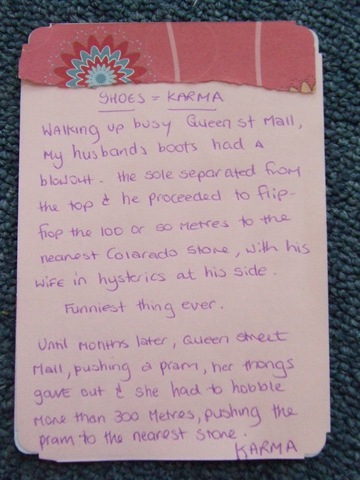 SHOES = KARMA
Walking up busy Queen st Mall,
My husbands boots had a
blowout. the sole separated from
the top & he proceeded to flip-
flop the 100 or so metres to the
nearest Colorado store, with his
wife in hysterics at his side.
Funniest thing ever.
Until months later, Queen street
Mall, pushing a pram, her thongs
gave out & she had to hobble
more than 300 metres, pushing the
pram to the nearest store.
KARMA